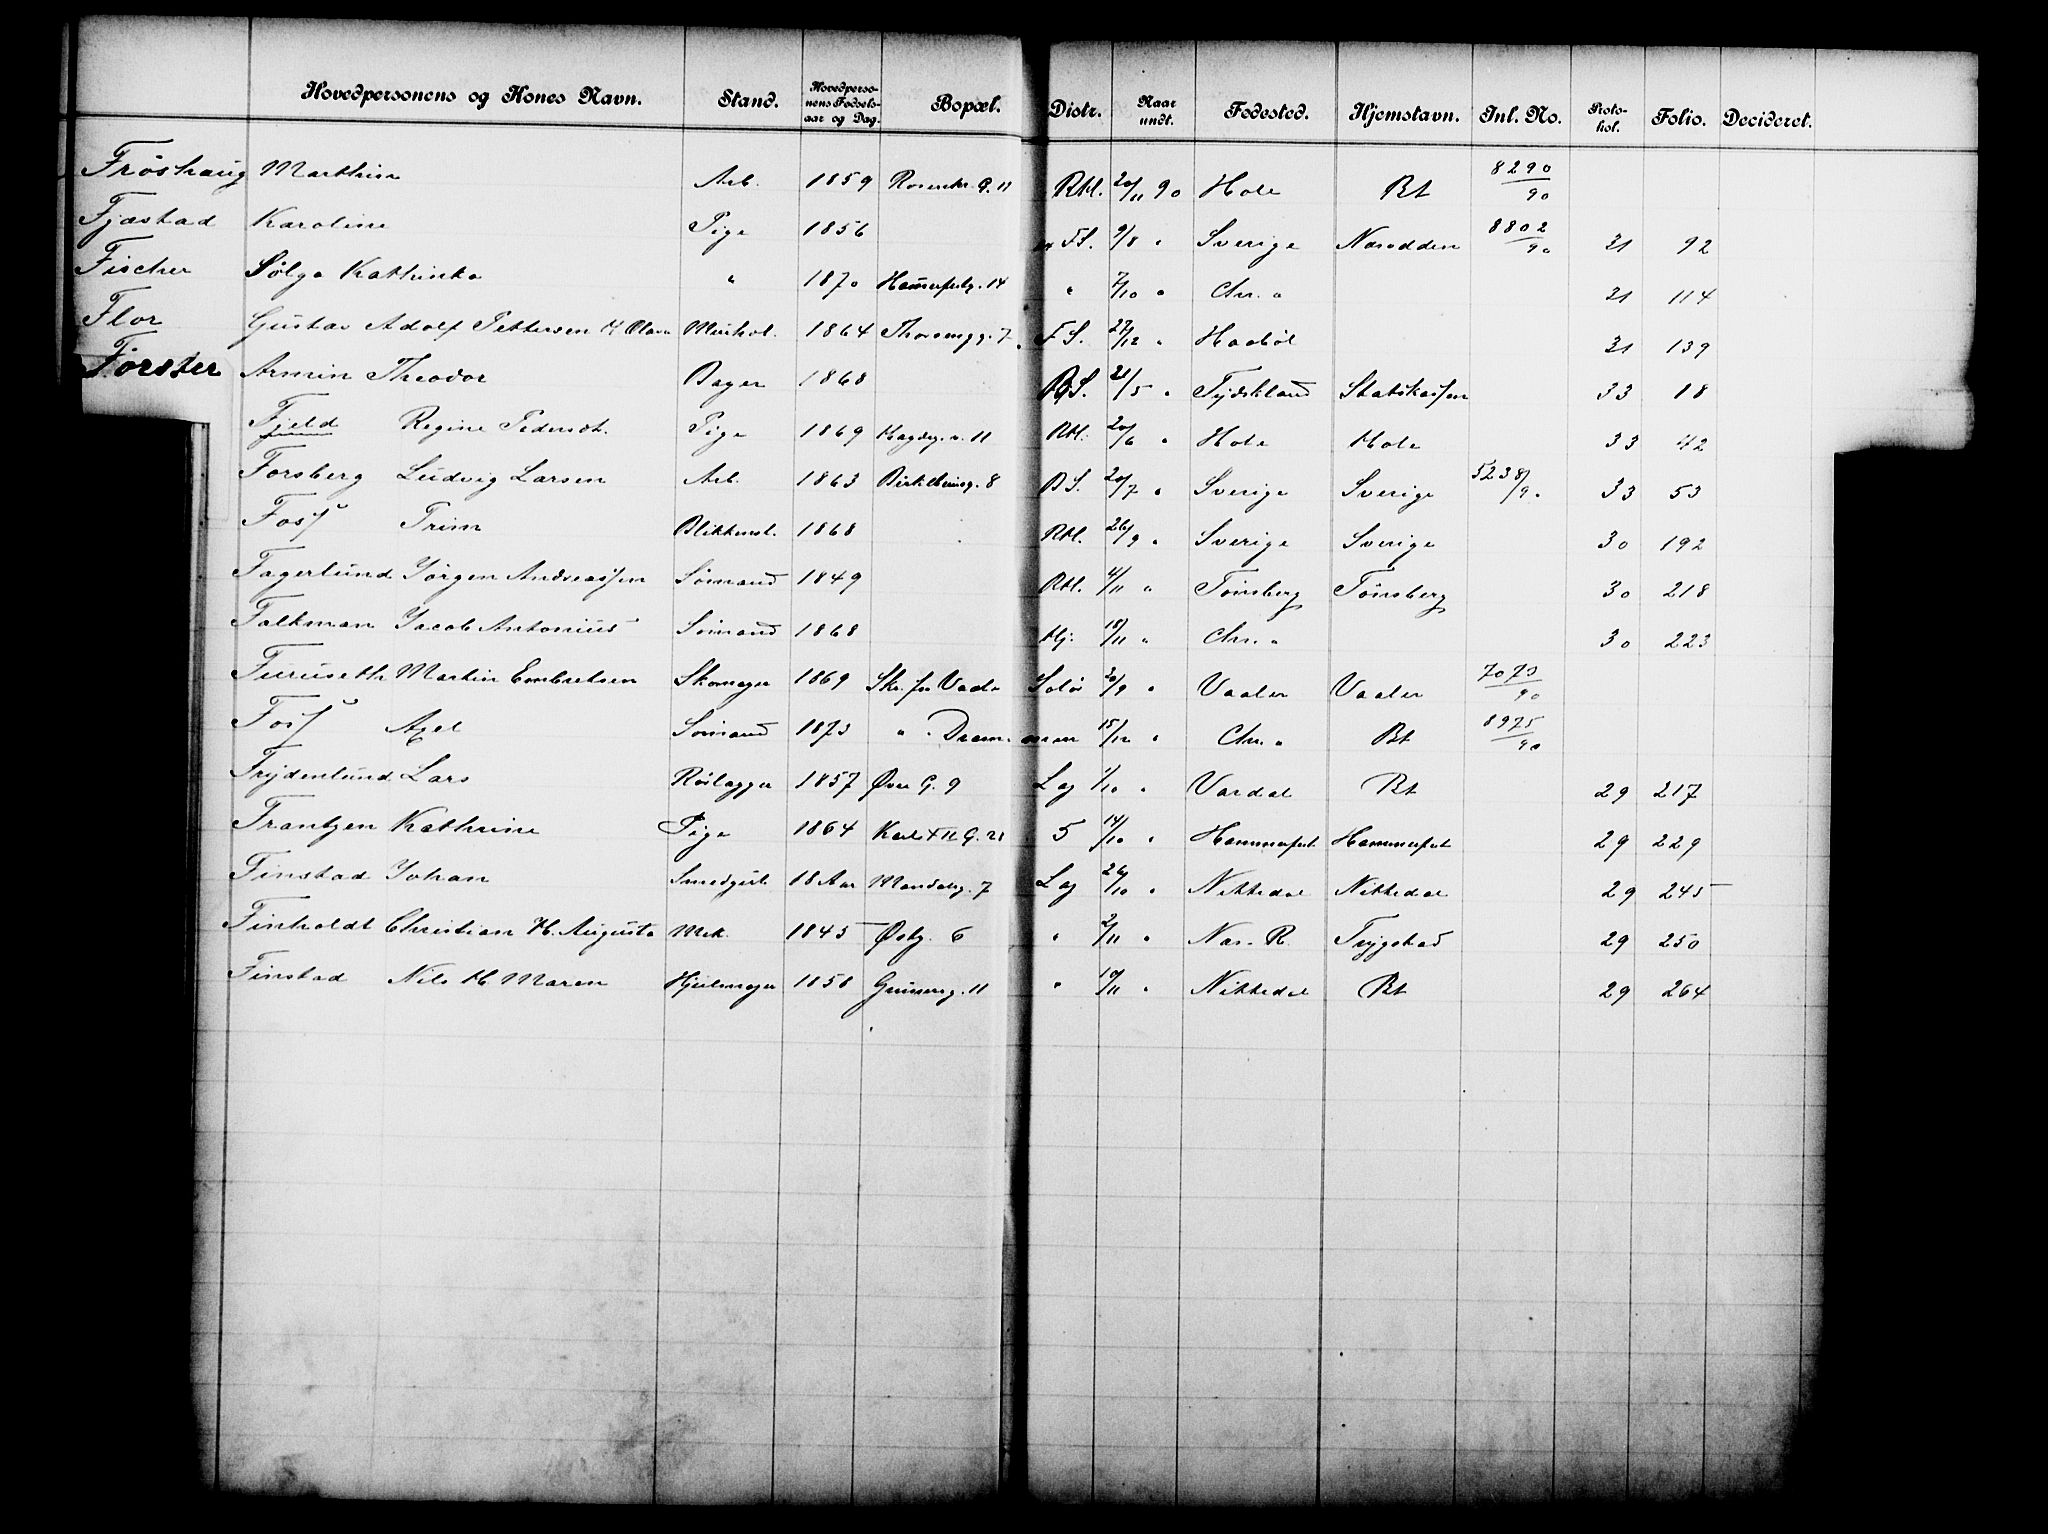 Hovedpersonens og Kones Navn. Stand. Hovedpersonens Fødselsaar og Dag. Bopæl. Distr. Naar undt. Fødested. Hjemstavn. Inl. No. Protokol. Folio. Decideret.
Frøshaug Marthin Arb. 1859 Rosenkr. G. 11 Rkl. 20/11 90 Hole Bt 8290/90
Fjæstad Karoline Pige 1856 F.S. 9/8 " Sverige Næsodden 8802/90 31 92
Fischer Sølga Kathinka " 1870 Hammerfestg. 14 " 7/10 " Chr.a 31 114
Flor Gustav Adolf Pettersen H Olava 1864 Thorsmgg. 7 F.S. 27/12 " Haabøl 31 139
Førster Armin Theodor Bager 1868 B.S. 21/5 " Tydskland Statskassen 33 18
Fjeld Regine Pedersdt. Pige 1869 11 Rkl. 20/6 " Hole Hole 33 42
Forsberg Ludvig Larsen Arb. 1863 Birkelunsg. 8 B.S. 20/7 " Sverige Sverige 5238/90 33 53
Foss Trim Blikkensl. 1868 Rkl. 26/9 " Sverige Sverige 30 192
Fagerlund Jørgen Andreassen Sømand 1849 Rkl. 4/11 " Tønsberg Tønsberg 30 218
Falkman Jacob Antonius Sømand 1868 Hj. 18/11 " Chr.a 30 223
Furuseth Martin Embretsen Skomager 1869 Skr. fra Vaaler Solør 20/9 " Vaaler Vaaler 7073/90
Foss Axel Sømand 1873 " " Drammen 15/12 " Chr.a Bt 8975/90
Frydenlund Lars Rørlægger 1857 Øvre G. 9 Lag 1/10 " Vardal Bt 29 217
Frantzen Kathrine Pige 1864 Karl XII G. 21 5 14/10 " Hammerfest Hammerfest 29 229
Finstad Johan Smedgut 18 Aar Mandalsg. 7 Lag 26/10 " Nittedal Nittedal 29 245
Finholdt Christian H. Augusta Mek. 1845 Østg. 6 " 2/11 " Næs. R. Trygstad 29 250
Finstad Nils H Maren Hjulmager 1858 Grünersg. 11 " 10/11 " Nittedal Bt 29 264